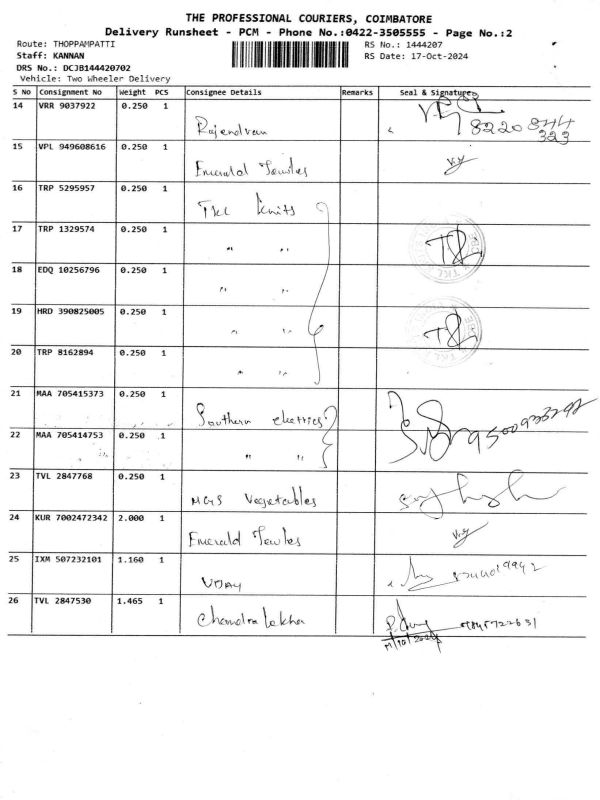 THE PROFESSIONAL COURIERS, COIMBATORE
Delivery Runsheet - PCM - Phone No.:0422-3505555 - Page No.:2
Route: THOPPAMPATTI RS No.: 1444207
Staff: KANNAN RS Date: 17-Oct-2024
DRS No.: DCJB144420702
Vehicle: Two Wheeler Delivery
S No Consignment No Weight PCS Consignee Details Remarks Seal & Signature
14 VRR 9037922 0.250 1
Rajendran 8220844
323
15 VPL 949608616 0.250 1
Emerald
16 TRP 5295957 0.250 1
TKL Knits
17 TRP 1329574 0.250 1
" "
18 EDQ 10256796 0.250 1
" "
19 HRD 390825005 0.250 1
" "
20 TRP 8162894 0.250 1
" "
21 MAA 705415373 0.250 1
Southern
22 MAA 705414753 0.250 1
" "
23 TVL 2847768 0.250 1
MGS Vegetables
24 KUR 7002472342 2.000 1
Emerald
25 IXM 507232101 1.160 1
VIJAY
26 TVL 2847530 1.465 1
Chandralekha